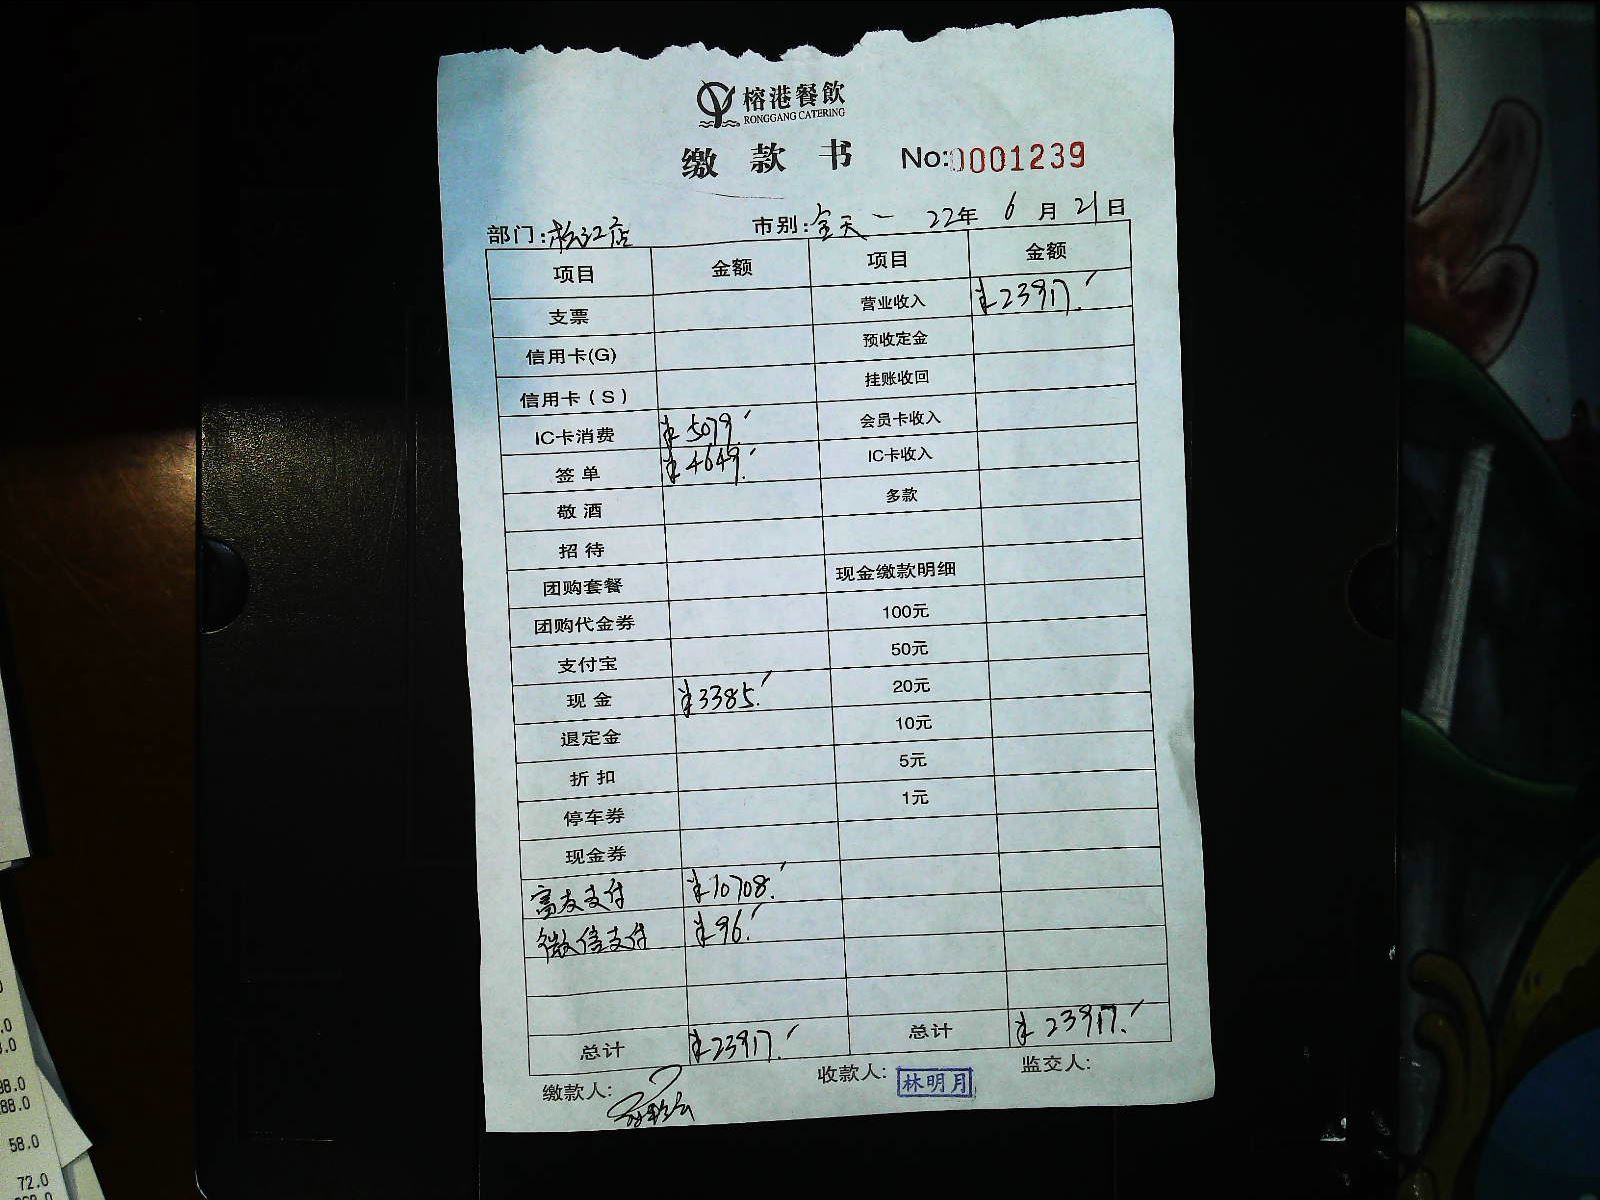 榕港餐飲
RONGGANG CATERING
缴款书 No:0001239
部门:松江店 市别:全天 22年6月21日
项目 金额 项目 金额
支票 营业收入 ¥23917.
信用卡(G) 预收定金
信用卡(S) 挂账收回
IC卡消费 ¥5079. 会员卡收入
签单 ¥4649. IC卡收入
敬酒 多款
招待
团购套餐 现金缴款明细
团购代金券 100元
支付宝 50元
现金 ¥3385. 20元
退定金 10元
折扣 5元
停车券 1元
现金券
富友支付 ¥10708.
微信支付 ¥96.
总计 ¥23917. 总计 ¥23917.
缴款人: 收款人: 林明月 监交人:
58.0
72.0